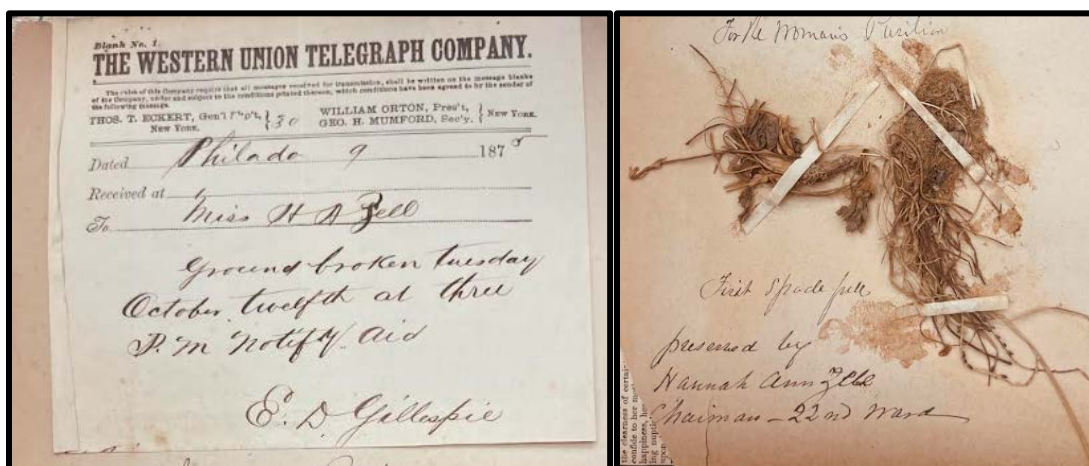 Blank No. 1.
THE WESTERN UNION TELEGRAPH COMPANY.
The rules of this Company require that all messages received for transmission, shall be written on the message blanks
of the Company, under and subject to the conditions printed thereon, which conditions have been agreed to by the sender of
the following message.
THOS. T. ECKERT, Gen'l Sup't, } 30 WILLIAM ORTON, Pres't, } NEW YORK.
NEW YORK. GEO. H. MUMFORD, Sec'y.
Dated Philada 9 1875
Received at
To Miss H A Zell
Ground broken tuesday
October twelfth at three
P. M Notify aid
E. D Gillespie
For the Womans Pavilion
First Spade full
preserved by
Hannah Ann Zell
Chaiman - 22nd Ward
the clearness of certai-
confide to her mo
happiness, he
ing nupti
upon